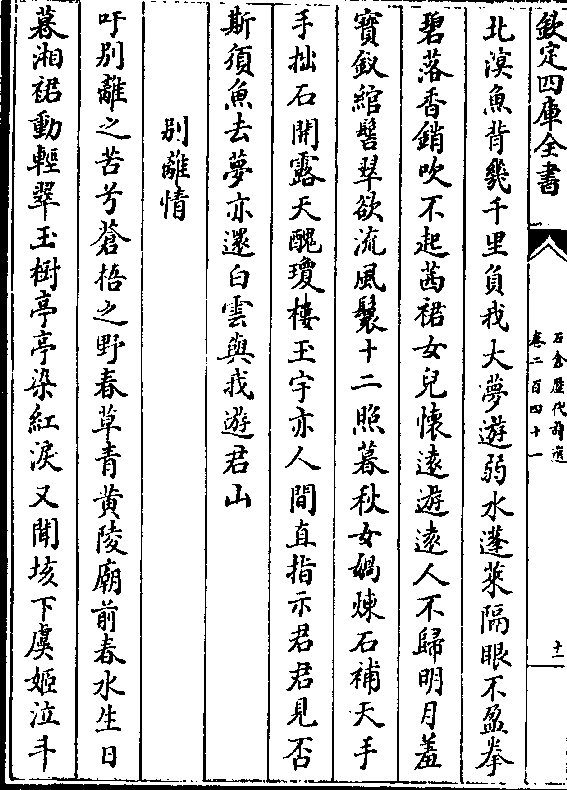 欽定四庫全書
石倉歷代詩選
卷二百四十一
十一
北溟魚背幾千里負我大夢遊弱水蓬萊隔眼不盈拳
碧落香銷吹不起茜裙女兒懷遠遊遠人不歸明月羞
寶釵綰髻翠欲流風鬟十二照暮秋女媧煉石補天手
手拙石開露天醜瓊樓玉宇亦人間直指示君君見否
斯須魚去夢亦還白雲與我遊君山
別離情
吁別離之苦兮蒼梧之野春草青黃陵廟前春水生日
暮湘裙動輕翠玉樹亭亭染紅淚又聞垓下虞姬泣斗